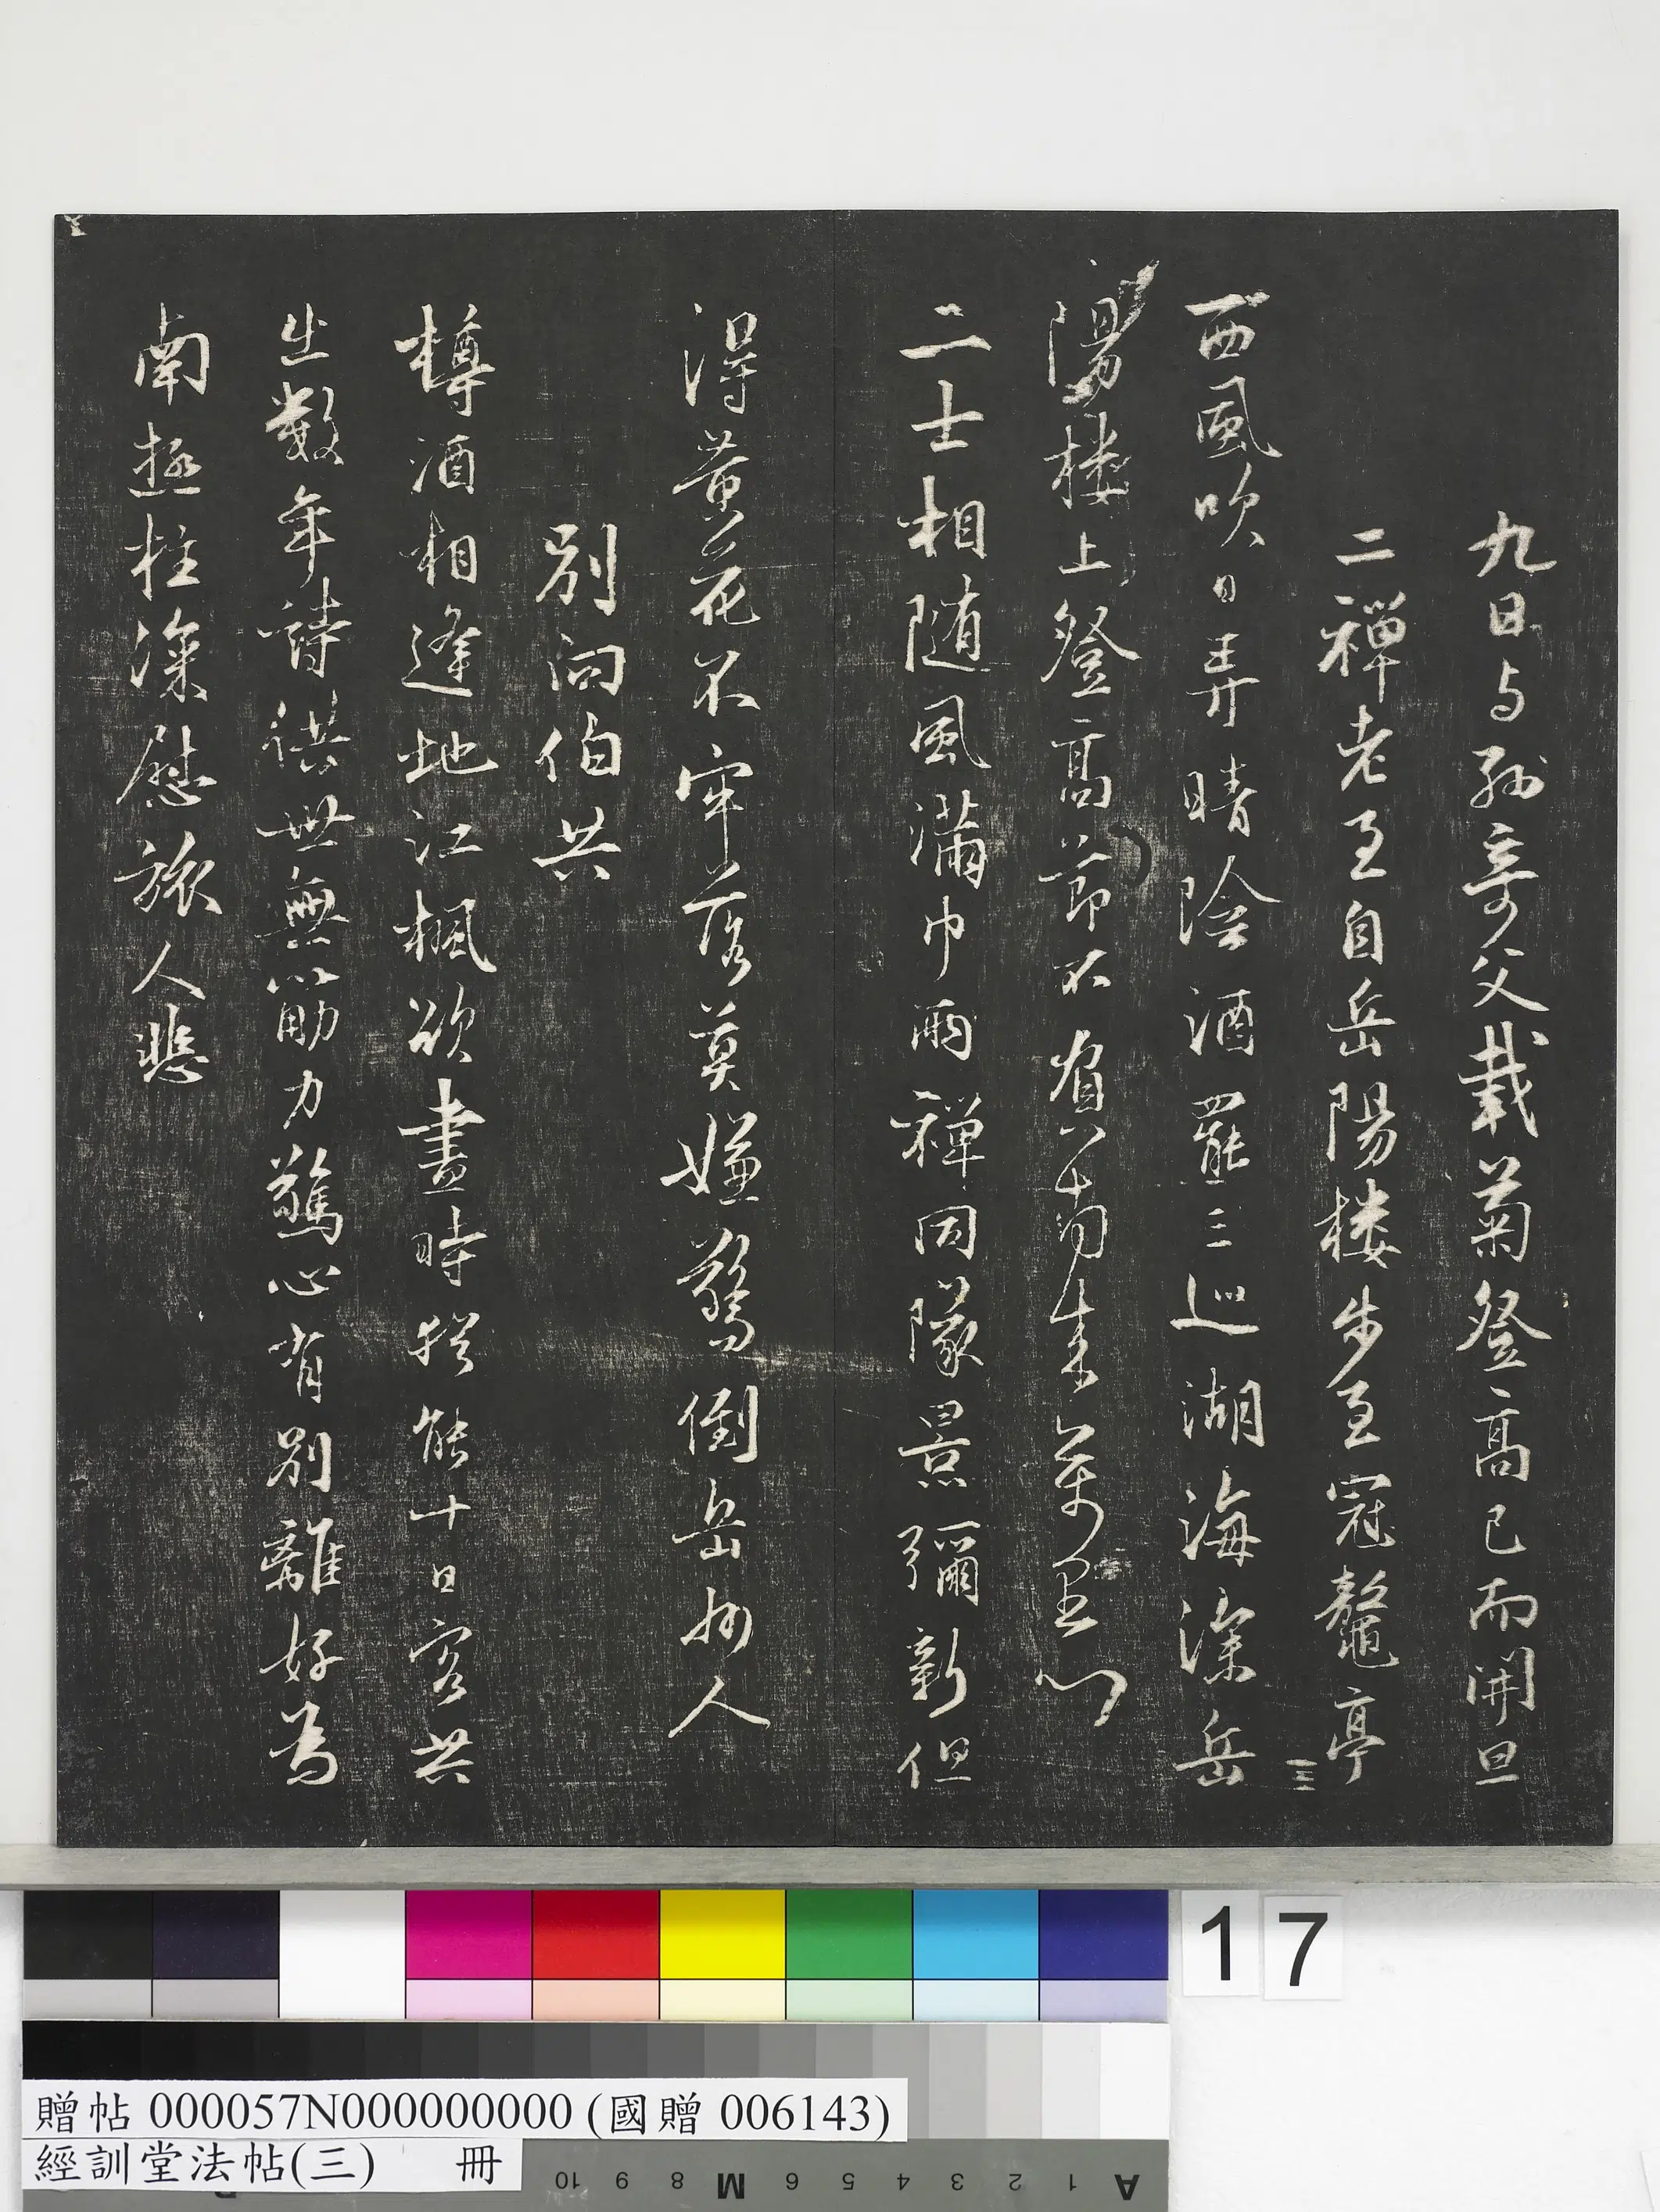 九日与孫奇父載菊登高已而開旦
二禪老至自岳陽楼步至冠鼇亭
西風吹日弄晴陰酒罷三巡湖海深岳
陽楼上登高節不負南來萬里心
二士相随風滿巾兩禪同隊景彌新但
得黃花不牢落莫嫌驚倒岳州人
別向伯共
樽酒相逢地江楓欲盡時猶能十日客共
出数年詩供世無筋力驚心有別離好為
南極柱深慰旅人悲
三
17
贈帖 000057N000000000 (國贈 006143)
經訓堂法帖(三) 冊
10 9 8 M 6 5 4 3 2 1 A